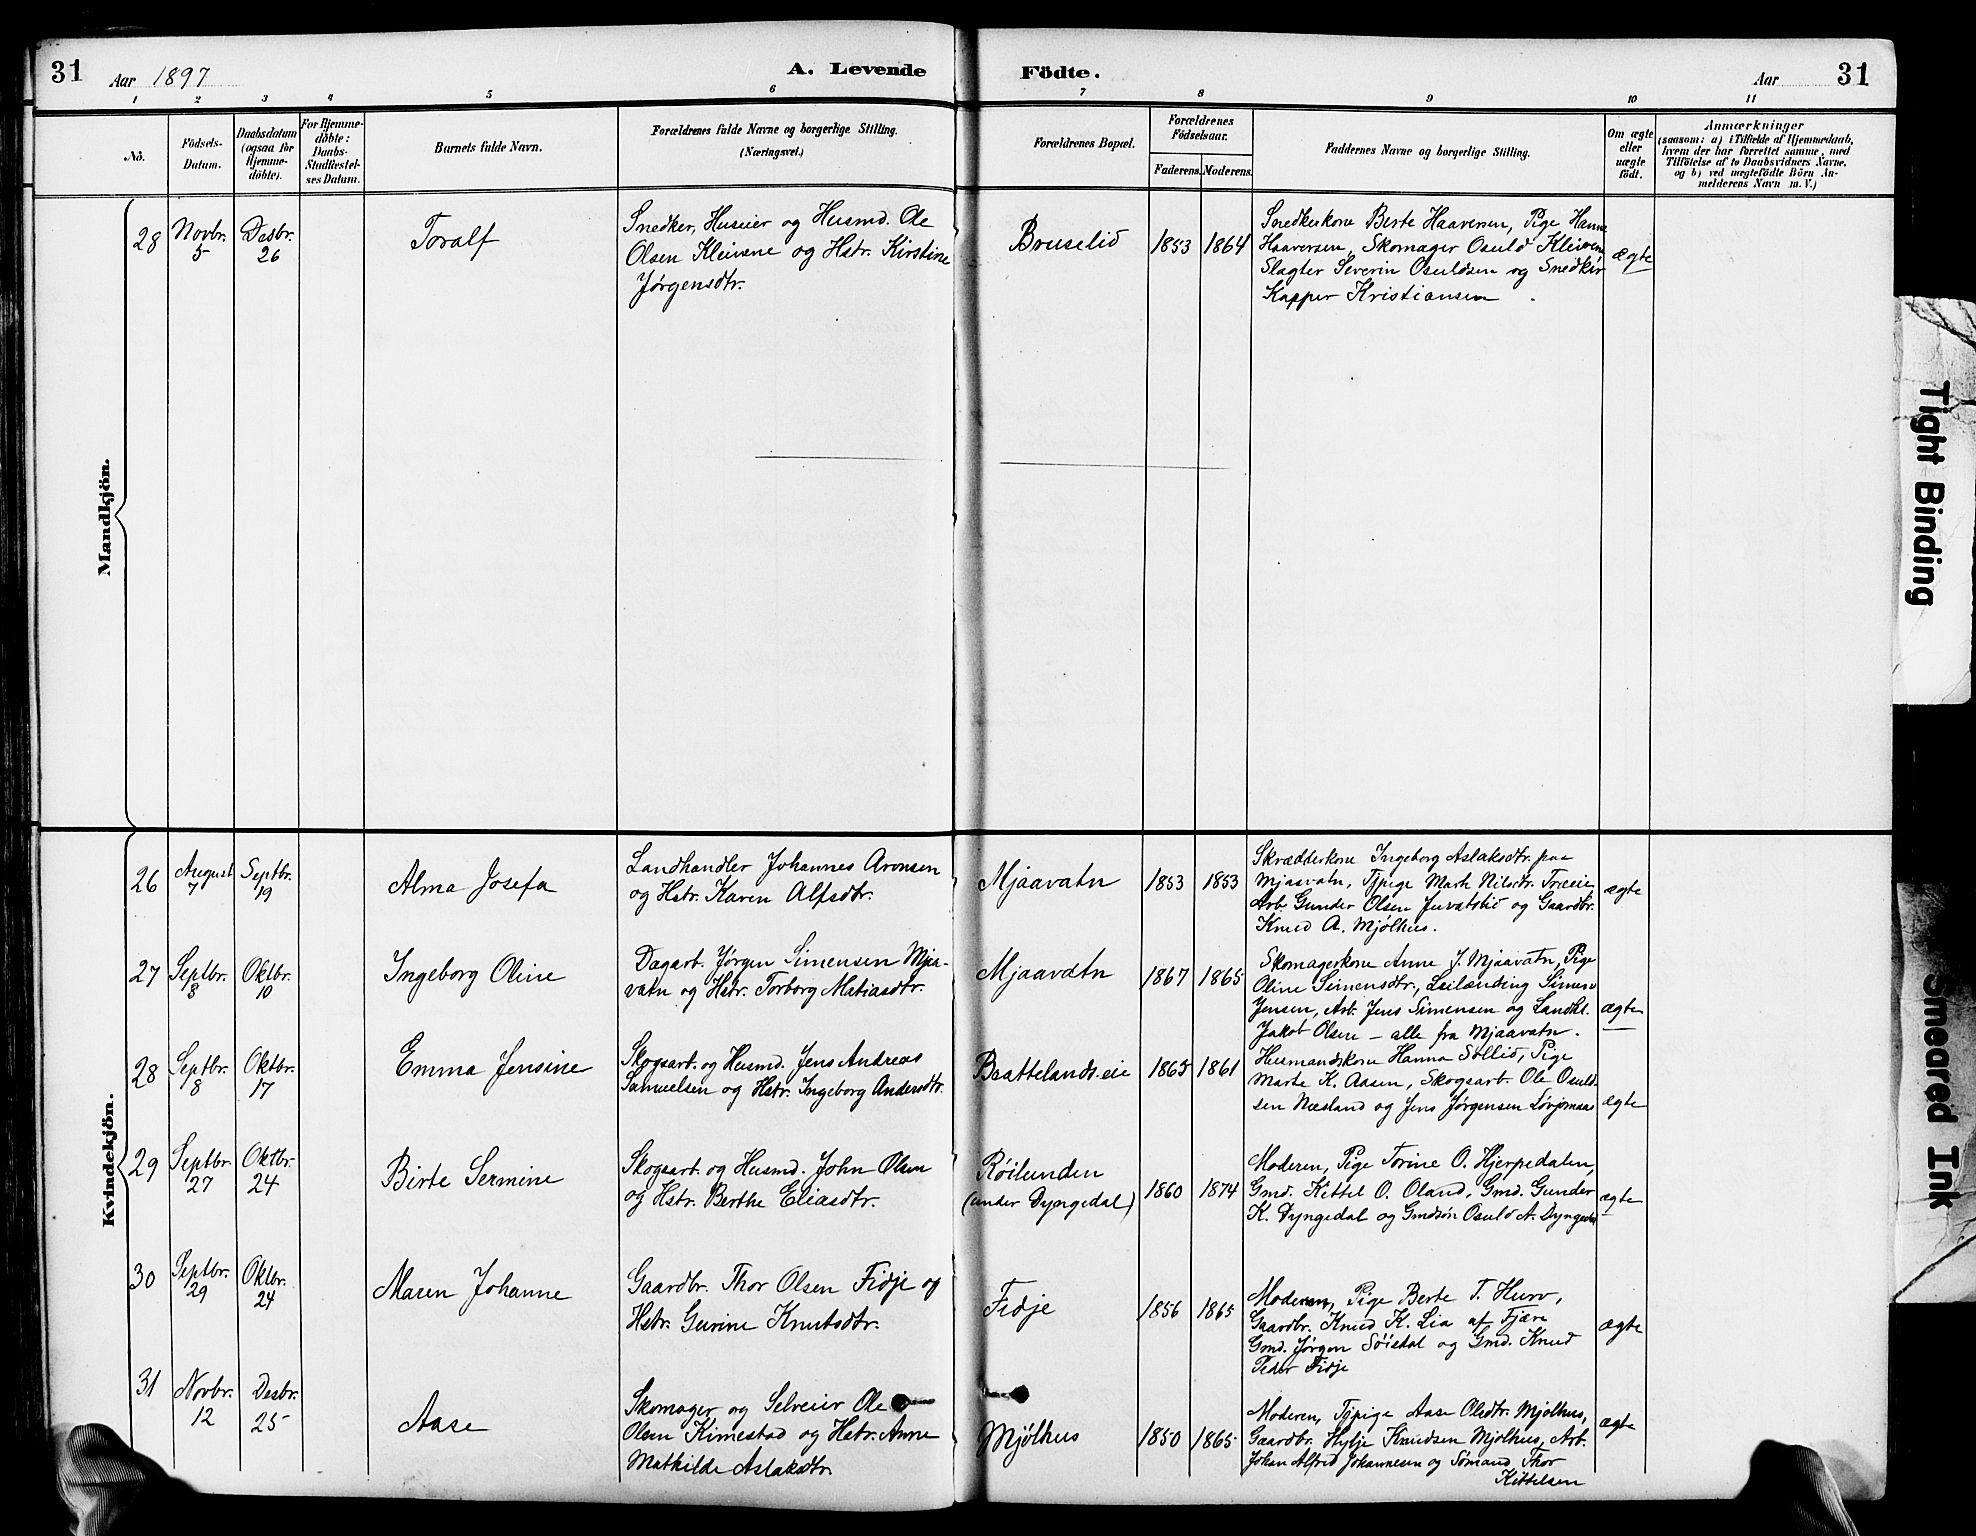 31
Aar 1897
A. Levende Födte.
Aar
31
1 2 3 4 5 6 7 8 9 10 11
No.
Födsels-
Datum.
Daabsdatum
(ogsaa for
Hjemme-
döbte).
For Hjemme-
döbte:
Daabs-
Stadfæstel-
ses Datum.
Barnets fulde Navn.
Forældrenes fulde Navne og borgerlige Stilling.
(Næringsvei.)
Forældrenes Bopæl.
Forældrenes
Födselsaar.
Faderens. Moderens.
Faddernes Navne og borgerlige Stilling.
Om ægte
eller
uægte
födt.
Anmærkninger
(saasom: a) i Tilfælde af Hjemmedaab,
hvem der har forrettet samme, med
Tilföielse af to Daabsvidners Navne,
og b) ved uægtefödte Börn An-
melderens Navn m. V.)
Mandkjön.
28
Novbr.
5
Desbr.
26
Toralf
Snedker, Huseier og Husmd. Ole
Olsen Kleivene og Hstr. Kirstine
Jørgensdtr.
Bruselid
1853
1864
Snedkerkone Berte Haaversen, Pige Hanne
Haaversen, Skomager Osuld Kleivene
Slagter Severin Osuldsen og Snedker
Kasper Kristiansen
ægte
Kvindekjön.
26
August
7
Septbr.
19
Alma Josefa
Landhandler Johannes Aronsen
og Hstr. Karen Alfsdtr.
Mjaavatn
1853
1853
Skrædderkone Ingeborg Aslaksdtr. paa
Mjaavatn, Tjpige Marte Nilsdtr.
Arb. Gunder Olsen og Gaardbr.
Knud A. Mjølhus.
ægte
27
Septbr.
3
Oktbr.
10
Ingeborg Oline
Dagarb. Jørgen Simensen Mjaa-
vatn og Hstr. Torborg Matiasdtr.
Mjaavatn
1867
1865
Skomagerkone Anne J. Mjaavatn, Pige
Oline Simensdtr., Leilænding Simen
Jensen, Arb. Jens Simensen og Landhl.
Jakob Olsen – alle fra Mjaavatn.
ægte
28
Septbr.
8
Oktbr.
17
Emma Jensine
Skogsarb. og Husmd. Jens Andreas
Samuelsen og Hstr. Ingeborg Andersdtr.
Brattelandseie
1865
1861
Husmandskone Hanna Sollid, Pige
Marte K. Aasen, Skogsarb. Ole Osuld-
sen Næsland og Jens Jørgensen
ægte
29
Septbr.
27
Oktbr.
24
Birte Sermine
Skogsarb. og Husmd. John Olsen
og Hstr. Berthe Eliasdtr.
Røilunden
(under Dyngedal)
1860
1874
Moderen, Pige Torine O. Hjerpedalen,
Gmd. Kittel O. Oland, Gmd. Gunder
K. Dyngedal og Gmdsøn Osuld A. Dyngedal
ægte
30
Septbr.
29
Oktbr.
24
Maren Johanne
Gaardbr. Thor Olsen Fidje og
Hstr. Gurine Knutsdtr.
Fidje
1856
1865
Moderen, Pige Berte T. Hurv,
Gaardbr. Knud K. Lia af Fjære
Gmd. Jørgen Søistal og Gmd. Knud
Peder Fidje
ægte
31
Novbr.
12
Desbr.
25
Aase
Skomager og Selveier Ole
Olsen Kimestad og Hstr. Anne
Mathilde Aslaksdtr.
Mjølhus
1850
1865
Moderen, Tjpige Aase Olsdtr. Mjølhus,
Gaardbr. Hylje Knudsen Mjølhus, Arb.
Johan Alfred Johannesen og Sømand Thor
Kittelsen
ægte
Tight Binding
Smeared Ink